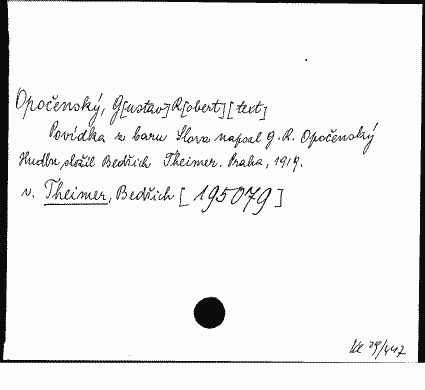 Opočenský, G[ustav] R[obert] [text]
Povídka z baru Slova napsal G. R. Opočenský
Hudbu složil Bedřich Theimer. Praha, 1919.
v. Theimer, Bedřich [195079]
29/447